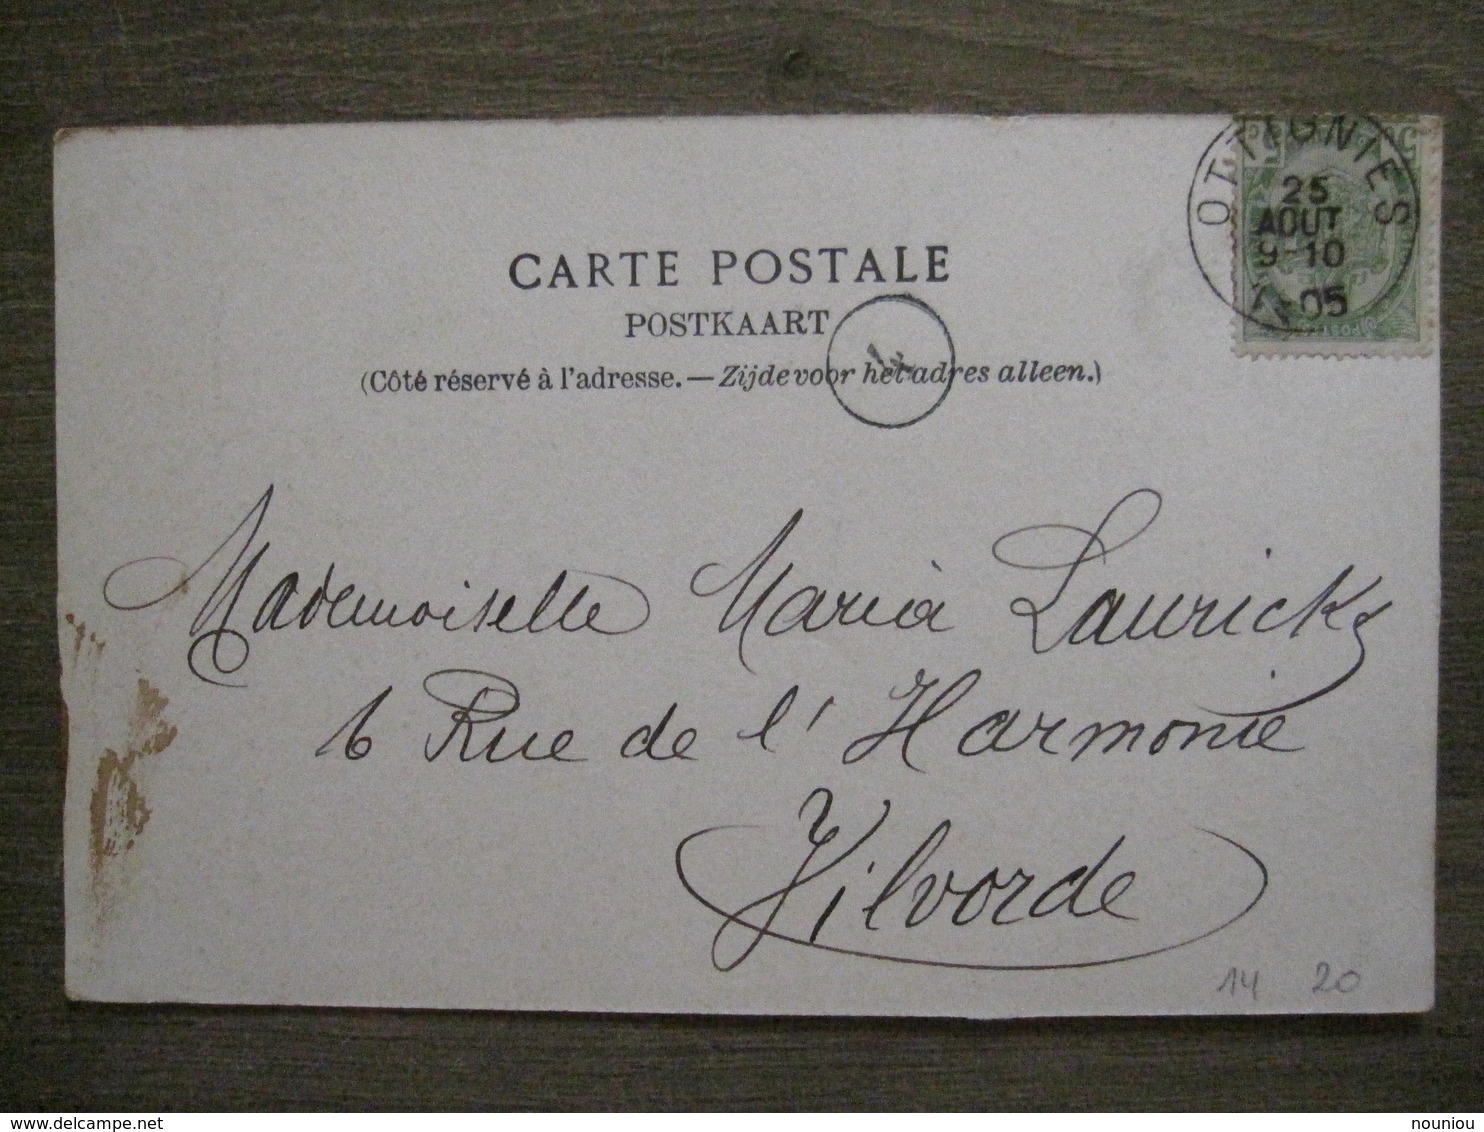 OTTIGNIES
25
AOUT
9-10
05
CARTE POSTALE
POSTKAART
(Côté réservé à l'adresse.—Zijde voor het adres alleen.)
Mademoiselle Maria Laurickx
6 Rue de l'Harmonie
Vilvorde
14 20
delcampe.net
nouniou